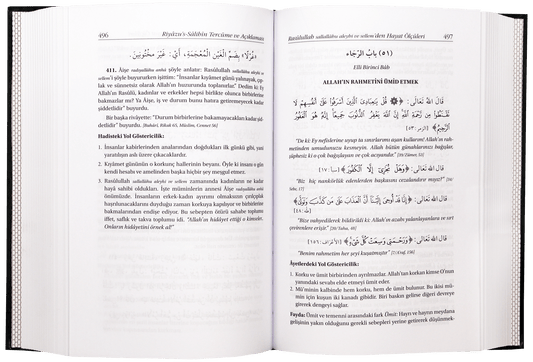 496
Riyâzu's-Sâlihîn Tercüme ve Açıklaması
«غُرْلًا» بِضَمِّ الْغَيْنِ الْمُعْجَمَةِ، أَيْ: غَيْرَ مَخْتُونِينَ.
411. Âişe radıyallâhu anhâ şöyle anlatır: Rasûlullah sallallâhu aleyhi ve
sellem'i şöyle buyururken işittim: "İnsanlar kıyâmet günü yalınayak, çıp-
lak ve sünnetsiz olarak haşrolunurlar." Dedim ki: Ey
Allah'ın Rasûlü, kadınlar ve erkekler hepsi birlikte olunca birbirlerine
bakmazlar mı? Ya Âişe, iş ve durum bunu hatıra getirmeyecek kadar
şiddetlidir" buyurdu.
Bir başka rivâyette: "Durum birbirlerine bakamayacakları kadar şid-
detlidir" buyurdu. (Buhârî, Rikak 45, Müslim, Cennet 56)
Hadisteki Yol Göstericilik:
1. İnsanlar kabirlerinden analarından doğdukları ilk günkü gibi, yani
yaratılışın aslı üzere çıkacaklardır.
2. Kıyâmet gününün o korkunç hallerinin beyanı. Öyle ki insanı o gün
kendi hesabı ve amelinden başka hiçbir şey meşgul etmez.
3. Rasûlullah sallallâhu aleyhi ve sellem zamanında kadınların ne kadar
hayâ sahibi oldukları. İşte müminlerin annesi Âişe radıyallâhu anhâ
497
Rasûlullah sallallâhu aleyhi ve sellem'den Hayat Ölçüleri
(٥١) بَابُ الرَّجَاءِ
Elli Birinci Bâb
ALLAH'IN RAHMETİNİ ÜMİD ETMEK
قَالَ اللهُ تَعَالَى: ﴿قُلْ يَا عِبَادِيَ الَّذِينَ أَسْرَفُوا عَلَى أَنْفُسِهِمْ لَا
تَقْنَطُوا مِنْ رَحْمَةِ اللهِ إِنَّ اللهَ يَغْفِرُ الذُّنُوبَ جَمِيعًا إِنَّهُ هُوَ الْغَفُورُ
الرَّحِيمُ﴾ [الزمر: ٥٣]
"De ki: Ey nefislerine uyup ta sınırlarımı aşan kullarım! Allah'ın rah-
metinden umudunuzu kesmeyin. Allah bütün günahlarınızı bağışlar,
şüphesiz ki o çok bağışlayan ve çok acıyandır." [39/Zümer, 53]
قَالَ اللهُ تَعَالَى: ﴿وَهَلْ نُجَازِي إِلَّا الْكَفُورَ﴾ [سبأ: ١٧]
"Biz hiç nankörlük edenlerden başkasını cezalandırır mıyız?" [34/
Sebe, 17]
قَالَ اللهُ تَعَالَى: ﴿إِنَّا قَدْ أُوحِيَ إِلَيْنَا أَنَّ الْعَذَابَ عَلَى مَنْ كَذَّبَ وَتَوَلَّى﴾
[طه: ٤٨]
"Bize vahyedilerek bildirildi ki: Allah'ın azabı yalanlayanlara ve sırt
çevirenlere erişir." [20/Tâhâ, 48]
قَالَ اللهُ تَعَالَى: ﴿وَرَحْمَتِي وَسِعَتْ كُلَّ شَيْءٍ﴾ [الأعراف: ١٥٦]
"Benim rahmetim her şeyi kuşatmıştır" [7/A'râf, 156]
Âyetlerdeki Yol Göstericilik:
1. Korku ve ümit birbirinden ayrılmazlar. Allah'tan korkan kimse O'nun
yanındaki sevabı elde etmeyi ümit eder.
2. Mü'minin kalbinde hem korku, hem de ümit bulunur. Bu ikisi mü-
min için kuşun iki kanadı gibidir. Biri baskın gelse diğeri devreye
girerek dengeyi sağlar.
Fayda: Ümit ve temenni arasındaki fark Ümit: Hayrı ve hayrın meydana
gelişinin yakın olduğunu gerekli sebepleri yerine getirerek düşünmek-